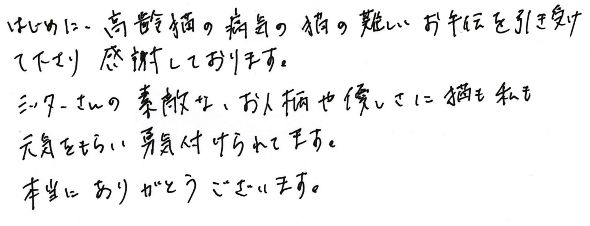 はじめに、高齢猫の病気の猫の難しいお手伝を引き受け
て下さり 感謝しております。
シッターさんの 素敵な、お人柄や優しさに 猫も 私も
元気をもらい 勇気付けられてます。
本当に ありがとう ございます。